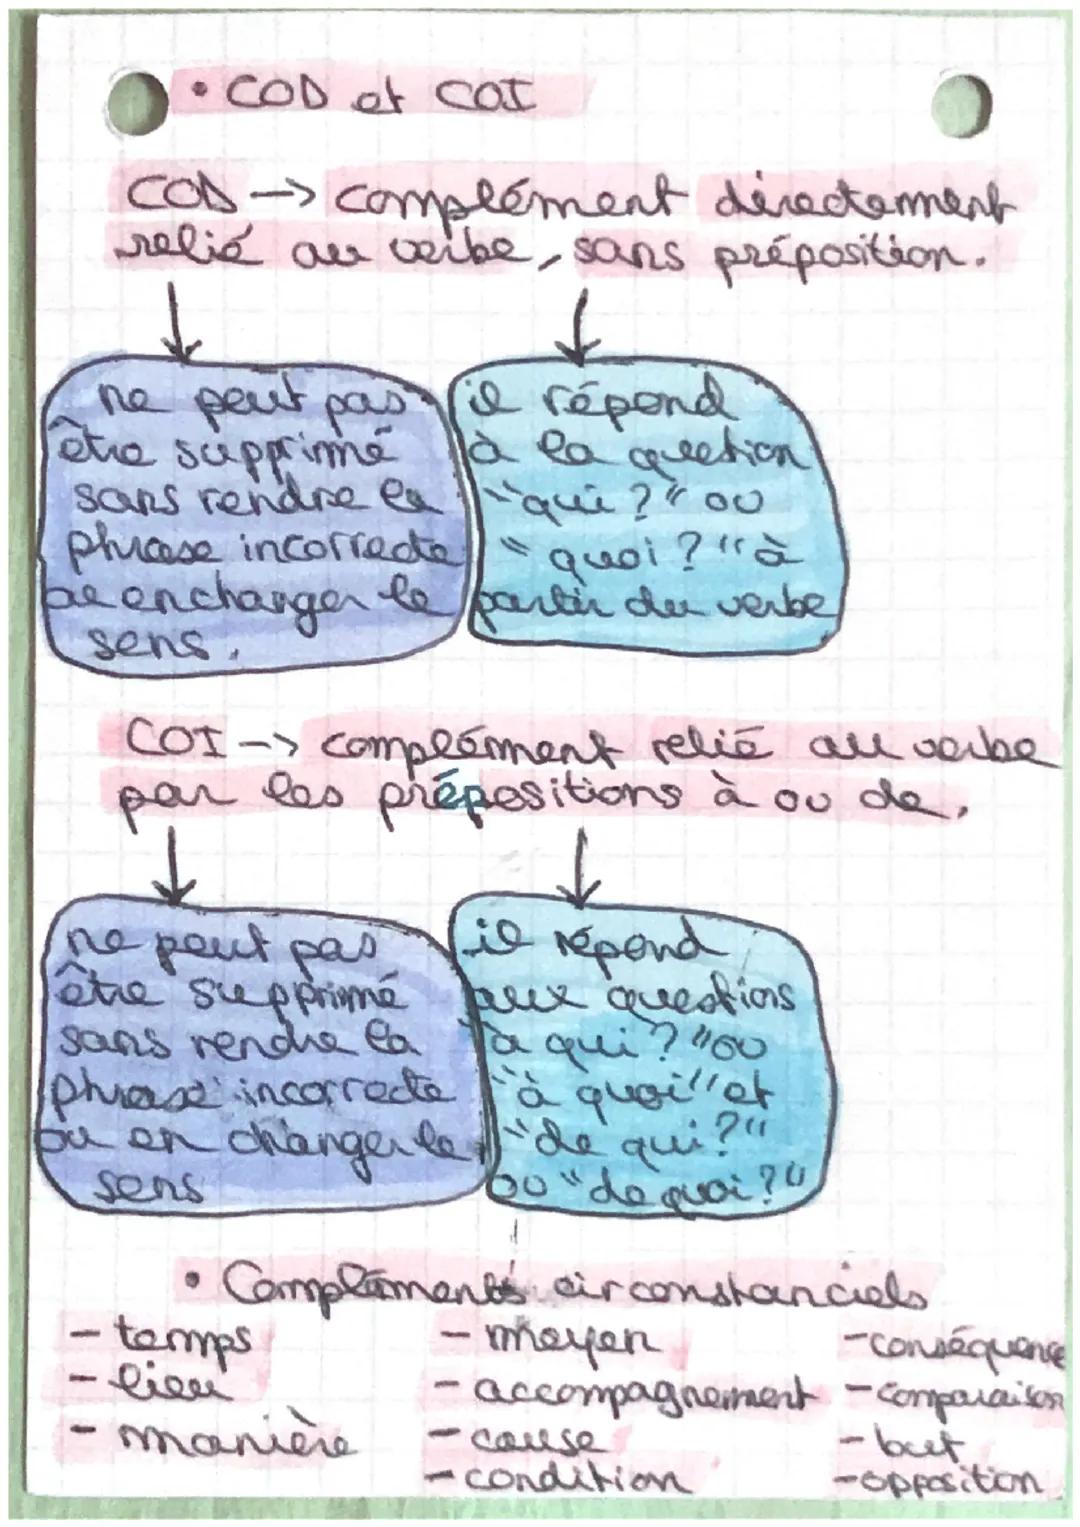 • COD et COI
COD → complément directement
relié au verbe, sans préposition.
ne peut pas
être supprimé
sans rendre la
phrase incorrecte
ou enchanger le
sens.
il répond
à la question
"qui ?" ou
"quoi ?" à
partir du verbe
COI -> complément relié au verbe
par les prépositions à ou de.
ne peut pas
être supprimé
sans rendre la
phrase incorrecte
ou en changer le
sens
il répond
aux questions
"à qui ?" ou
"à quoi" et
"de qui ?"
ou "de quoi ?"
• Compléments circonstanciels
- temps
- lieu
- manière
- moyen
- accompagnement
- cause
- condition
- conséquence
- comparaison
- but
- opposition